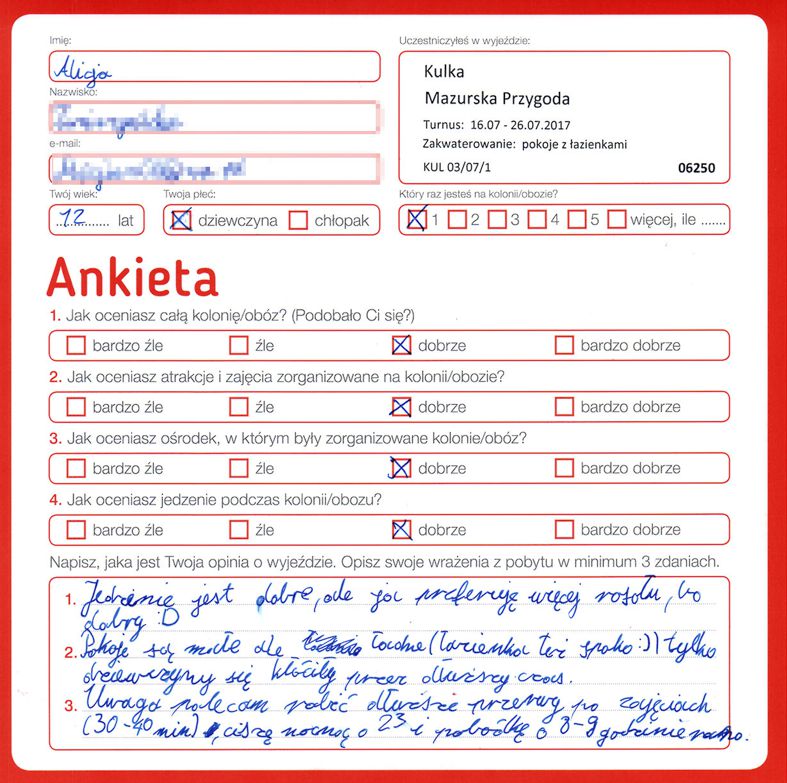 Imię:
Alicja
Uczestniczyłeś w wyjeździe:
Kulka
Mazurska Przygoda
Turnus: 16.07 - 26.07.2017
Zakwaterowanie: pokoje z łazienkami
KUL 03/07/1 06250
Nazwisko:
e-mail:
Twój wiek:
12 lat
Twoja płeć:
dziewczyna chłopak
Który raz jesteś na kolonii/obozie?
1 2 3 4 5 więcej, ile .......
Ankieta
1. Jak oceniasz całą kolonię/obóz? (Podobało Ci się?)
bardzo źle źle dobrze bardzo dobrze
2. Jak oceniasz atrakcje i zajęcia zorganizowane na kolonii/obozie?
bardzo źle źle dobrze bardzo dobrze
3. Jak oceniasz ośrodek, w którym były zorganizowane kolonie/obóz?
bardzo źle źle dobrze bardzo dobrze
4. Jak oceniasz jedzenie podczas kolonii/obozu?
bardzo źle źle dobrze bardzo dobrze
Napisz, jaka jest Twoja opinia o wyjeździe. Opisz swoje wrażenia z pobytu w minimum 3 zdaniach.
1. Jedzenie jest dobre, ale ja preferuję więcej rosołu, bo
dobry :D
2. Pokoje są małe ale ładne (łazienka też spoko :)) tylko
dziewczyny się kłóciły przez dłuższy czas.
3. Uwaga polecam robić dłuższe przerwy po zajęciach
(30-40 min), ciszę nocną o 23 i pobódkę o 8-9 godzinie rano.